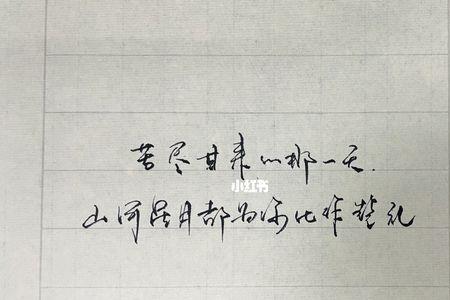 苦尽甘来的那一天.
小红书
山河星月都为你比作礼